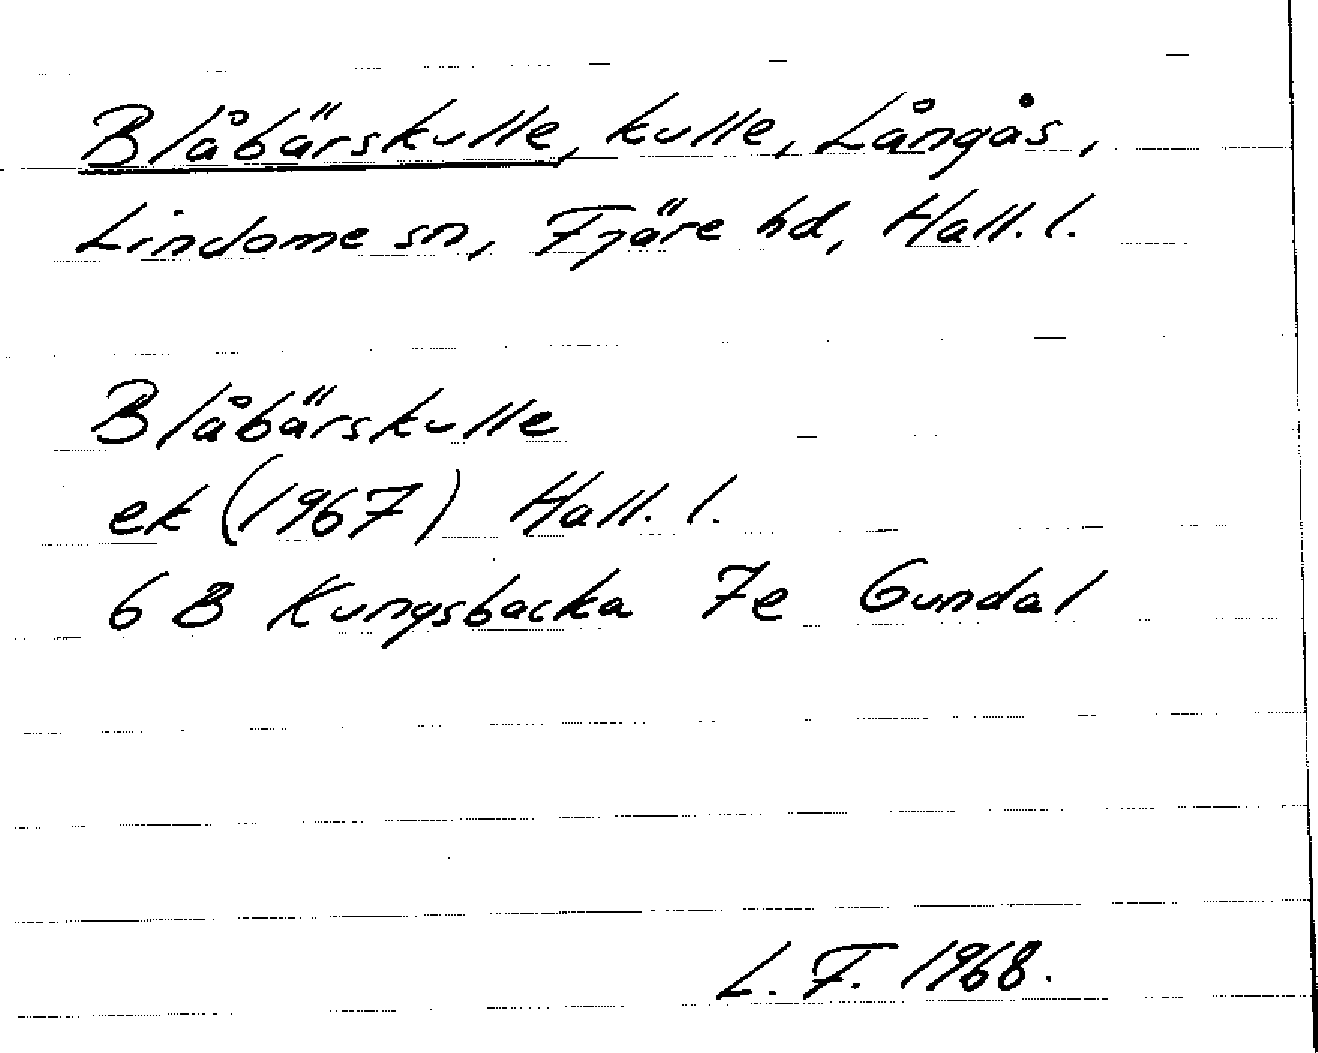 Blåbärskulle, kulle, Långås,
Lindome sn, Fjäre hd, Hall. l.
Blåbärskulle
ek (1967) Hall. l.
6 B Kungsbacka 7e Gundal
L. F. 1968.